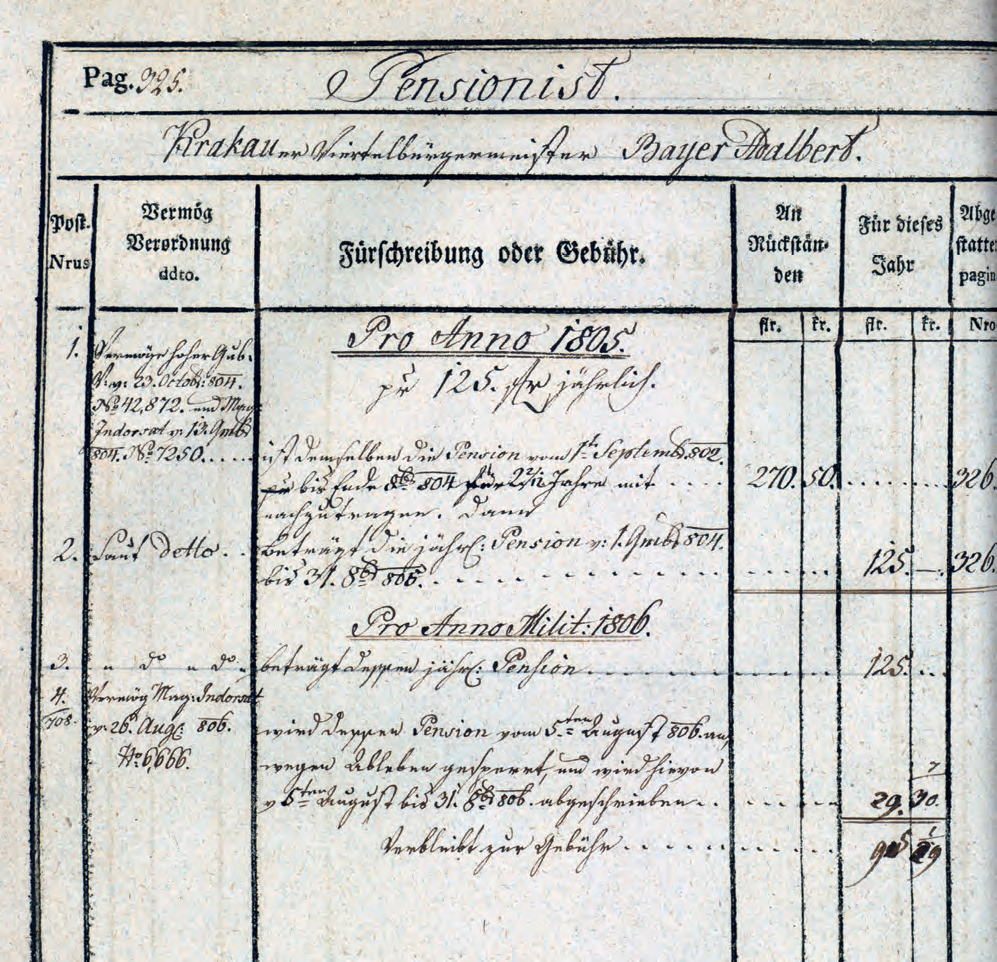 Pag. 325. Pensionist.
Krakauer Viertelbürgermeister Bayer Adalbert.
Post. Nrus
Vermög Verordnung ddto.
Fürschreibung oder Gebühr.
An Rückstän- den
Für dieses Jahr
Abge statte pagin
flr. kr. flr. kr. Nro
Pro Anno 1805.
pr 125. flr jährlich.
1. Vermöge hoher Gub.
V: v: 23. Octob: 804.
No 42,872. und Mag:
Indorsat v: 13. 9mb
804. No 7250.....
ist demselben die Pension vom 1t Septemb. 802.
bis Ende 8b 804 für 2 2/12 Jahre mit .... 270. 50. ....... 326.
nachzutragen. Dann
2. Laut detto. .. beträgt die jährl: Pension v: 1. 9mb 804.
bis 31. 8b 805. ........ 125. — . 326.
Pro Anno Milit: 1806.
3. " do " do " beträgt dessen jährl: Pension ........ 125. ..
4. Vermög Mag: Indorsat
708. v: 26. Aug: 806.
No 6,666.
wird dessen Pension vom 5ten August 806. an,
wegen Ableben gesperrt, und wird hievon
v 5ten August bis 31. 8b 806. abgeschrieben .. .... 29. 30.
7
Verbleibt zur Gebühr ........